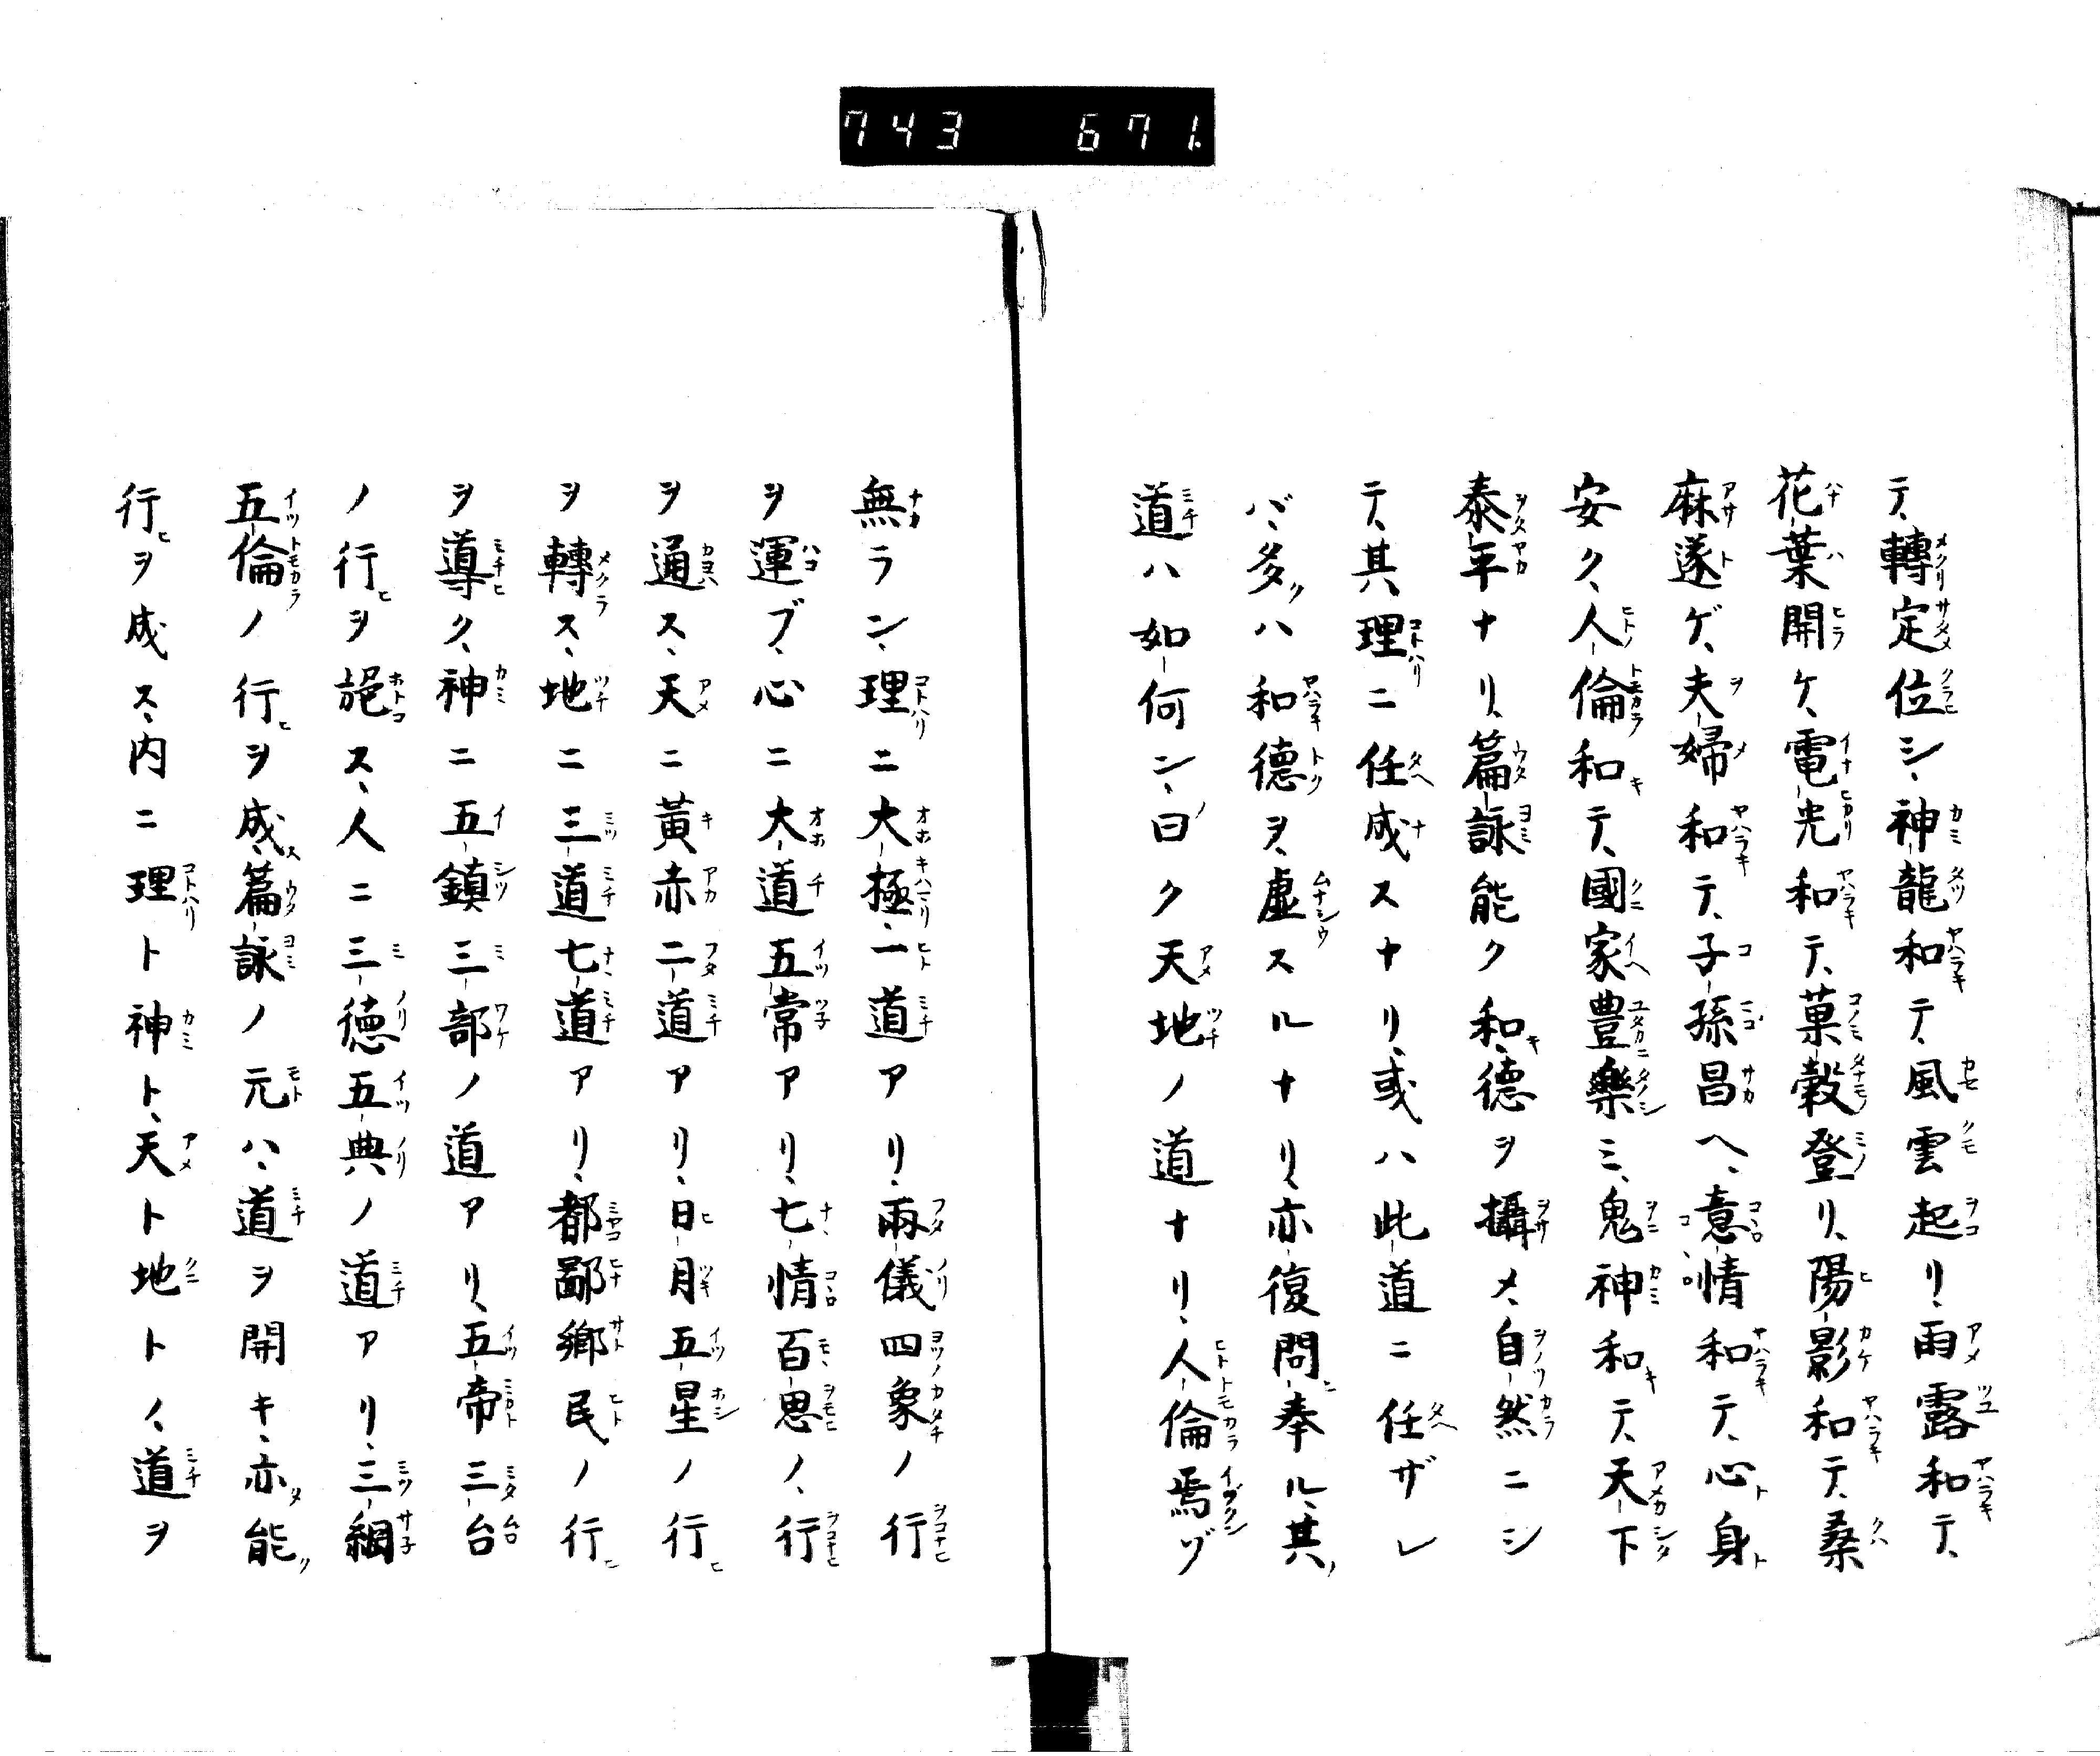 743 671
テ、轉定位シ、神龍和テ風雲起リ、雨露和テ、
花葉開ケ、電光和テ、菓穀登リ、陽影和テ、桑
麻遂ゲ、夫婦和テ、子孫昌ヘ、意情和テ、心身
安ク、人倫和テ、國家豊樂ミ、鬼神和テ、天下
泰平ナリ、篇詠能ク和、德ヲ攝メ、自然ニシ
テ、其理ニ任成スナリ、或ハ此道ニ任ザレ
バ、多ハ和德ヲ、虚スルナリ、亦復問奉ル、其
道ハ如何ン、曰ク天地ノ道ナリ、人倫焉ヅ
無ラン、理ニ大極、一道アリ、兩儀四象ノ行
ヲ運ブ、心ニ大道五常アリ、七情百思ノ、行
ヲ通ス、天ニ黃赤二道アリ、日月五星ノ行
ヲ轉ス、地ニ三道七道アリ、都鄙鄉民ノ行
ヲ導ク、神ニ五鎮三部ノ道アリ、五帝三台
ノ行ヲ施ス、人ニ三德五典ノ道アリ、三綱
五倫ノ行ヲ成、篇詠ノ元ハ、道ヲ開キ、亦能
行ヲ成ス、内ニ理ト神ト、天ト地トノ、道ヲ